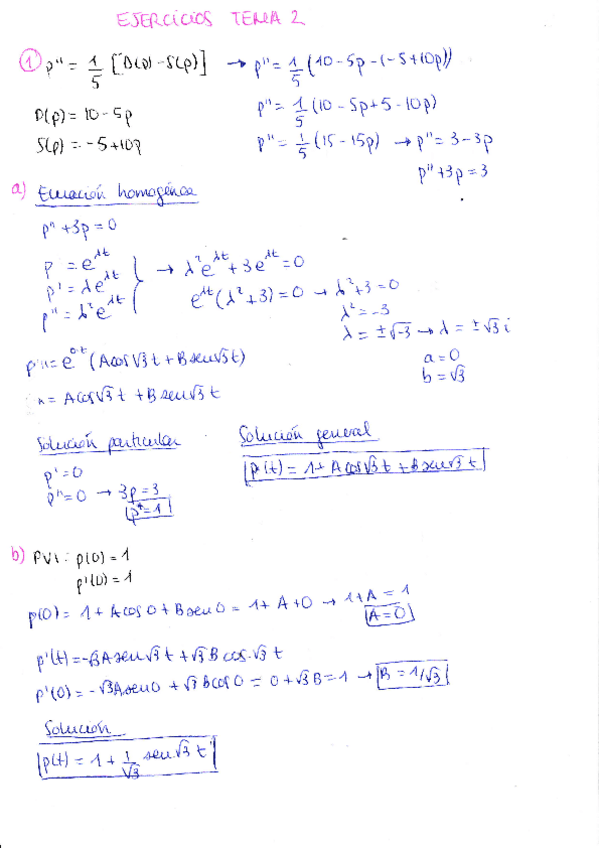 EJERCICIOS TEMA 2
① p'' = 1/5 [D(p) - S(p)] → p'' = 1/5 (10 - 5p - (-5 + 10p))
p'' = 1/5 (10 - 5p + 5 - 10p)
D(p) = 10 - 5p
S(p) = -5 + 10p
p'' = 1/5 (15 - 15p) → p'' = 3 - 3p
p'' + 3p = 3
a) Ecuación homogénea
p'' + 3p = 0
p = e^λt
p' = λe^λt
p'' = λ²e^λt
} → λ²e^λt + 3e^λt = 0
e^λt (λ² + 3) = 0 → λ² + 3 = 0
λ² = -3
λ = ±√-3 → λ = ±√3 i
a = 0
b = √3
= e^0·t (A cos √3 t + B sen √3 t)
= A cos √3 t + B sen √3 t
Solución particular
p' = 0
p'' = 0 → 3p = 3
p* = 1
Solución general
p(t) = 1 + A cos √3 t + B sen √3 t
b) PVI: p(0) = 1
p'(0) = 1
p(0) = 1 + A cos 0 + B sen 0 = 1 + A + 0 → 1 + A = 1
A = 0
p'(t) = -√3 A sen √3 t + √3 B cos √3 t
p'(0) = -√3 A sen 0 + √3 B cos 0 = 0 + √3 B = 1 → B = 1/√3
Solución
p(t) = 1 + 1/√3 sen √3 t